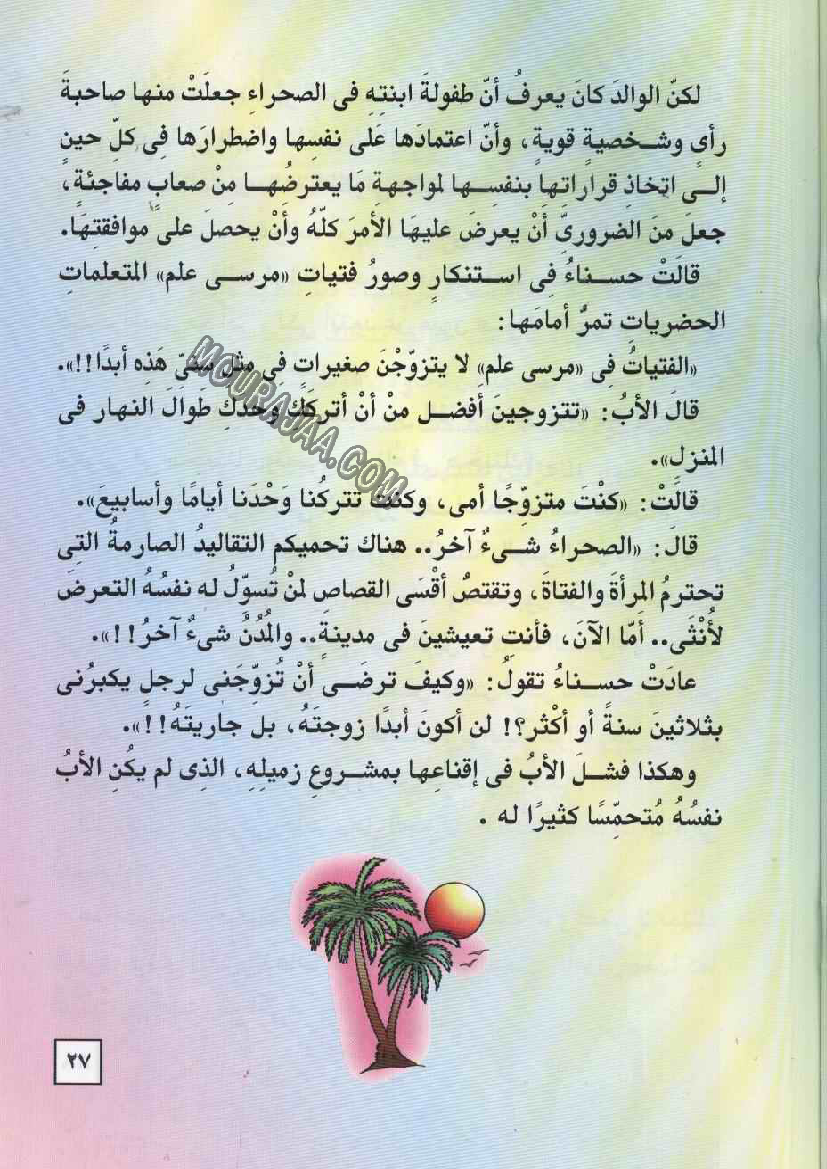 لكنّ الوالدَ كانَ يعرفُ أنّ طفولةَ ابنتِهِ فى الصحراءِ جعلَتْ منها صاحبةَ
رأىٍ وشـخصيةٍ قويةٍ، وأنّ اعتمادَها عَلى نفسِها واضطرارَها فِى كلّ حينٍ
إلـى اتخاذِ قراراتِها بنفسِـها لمواجهةِ مَا يعترضُهـا مِنْ صعابٍ مفاجئةٍ،
جعلَ منَ الضرورىّ أنْ يعرضَ عليهَا الأمرَ كلّهُ وأنْ يحصلَ على موافقتِهَا.
قالَتْ حسـناءُ فِى اسـتنكارٍ وصورُ فتياتِ «مرسـى علم» المتعلماتِ
الحضرياتِ تمرُّ أمامَها:
«الفتياتُ فِى «مرسى علم» لا يتزوّجْنَ صغيراتٍ فى مثلِ سنّىّ هَذِه أبدًا!!».
قالَ الأبُ: «تتزوجينَ أفضـل منْ أنْ أتركَكِ وَحْدَكِ طوال النهار فى
المنزلِ».
قالَتْ: «كنْتَ متزوّجًا أمى، وكنتَ تتركُنا وَحْدَنا أيامًا وأسابيعَ».
قالَ: «الصحراءُ شـىءٌ آخرُ.. هناك تحميكم التقاليدُ الصارمةُ التِى
تحترمُ المرأةَ والفتاةَ، وتقتصُ أقْسَى القصاصِ لمنْ تُسوّلُ له نفسُهُ التعرضَ
لأُنْثَى.. أمّا الآنَ، فأنتِ تعيشينَ فى مدينةٍ.. والمُدُنُ شىءٌ آخرُ!!».
عادَتْ حسـناءُ تقولُ: «وكيفَ ترضَـى أنْ تُزوّجَنى لرجلٍ يكبرُنى
بثلاثينَ سنةً أو أكْثر؟! لن أكونَ أبدًا زوجتَهُ، بل جاريتَهُ!!».
وهكذا فشـلَ الأبُ فى إقناعِها بمشـروعِ زميلِهِ، الذِى لم يكُنِ الأبُ
نفسُهُ مُتحمّسًا كثيرًا له .
MOURAJAA.COM
٢٧